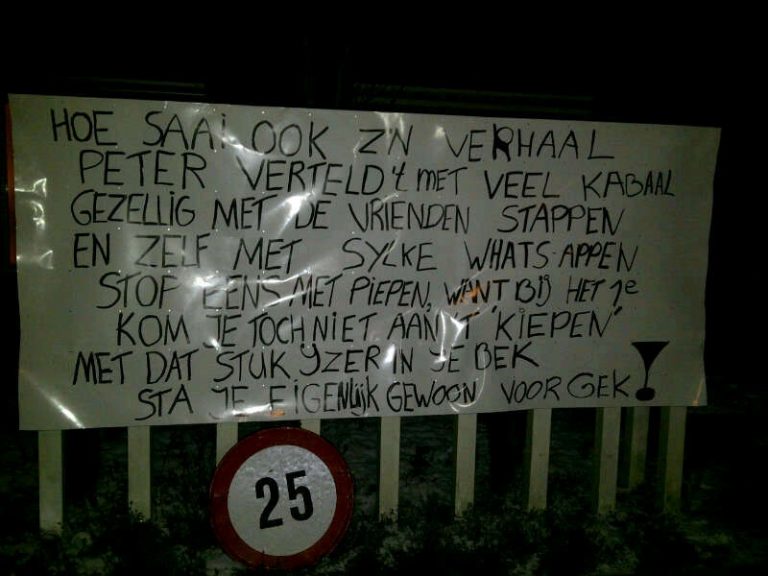 HOE SAAI OOK Z'N VERHAAL
PETER VERTELD 't MET VEEL KABAAL
GEZELLIG MET DE VRIENDEN STAPPEN
EN ZELF MET SYLKE WHATS-APPEN
STOP EENS MET PIEPEN, WANT BIJ HET 1e
KOM JE TOCH NIET AAN 'T "KIEPEN"
MET DAT STUK YZER IN JE BEK
STA JE EIGENLIJK GEWOON VOOR GEK!
25